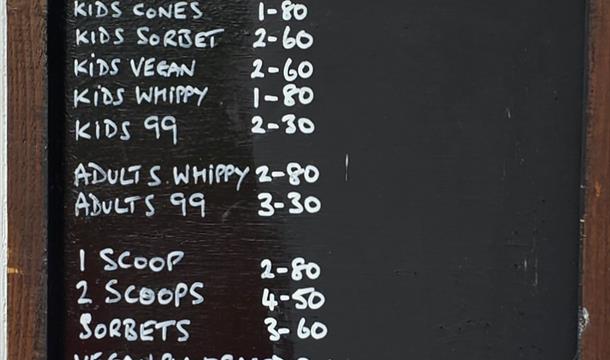 KIDS CONES 1-80
KIDS SORBET 2-60
KIDS VEGAN 2-60
KIDS WHIPPY 1-80
KIDS 99 2-30
ADULTS WHIPPY 2-80
ADULTS 99 3-30
1 SCOOP 2-80
2 SCOOPS 4-50
SORBETS 3-60